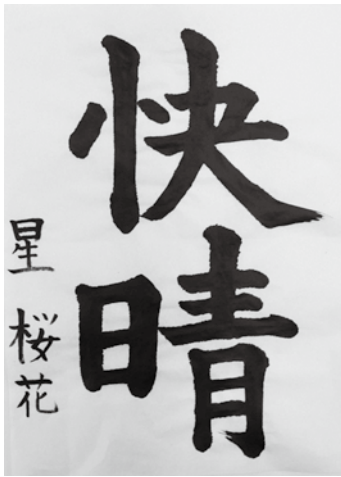 快晴
星 桜花